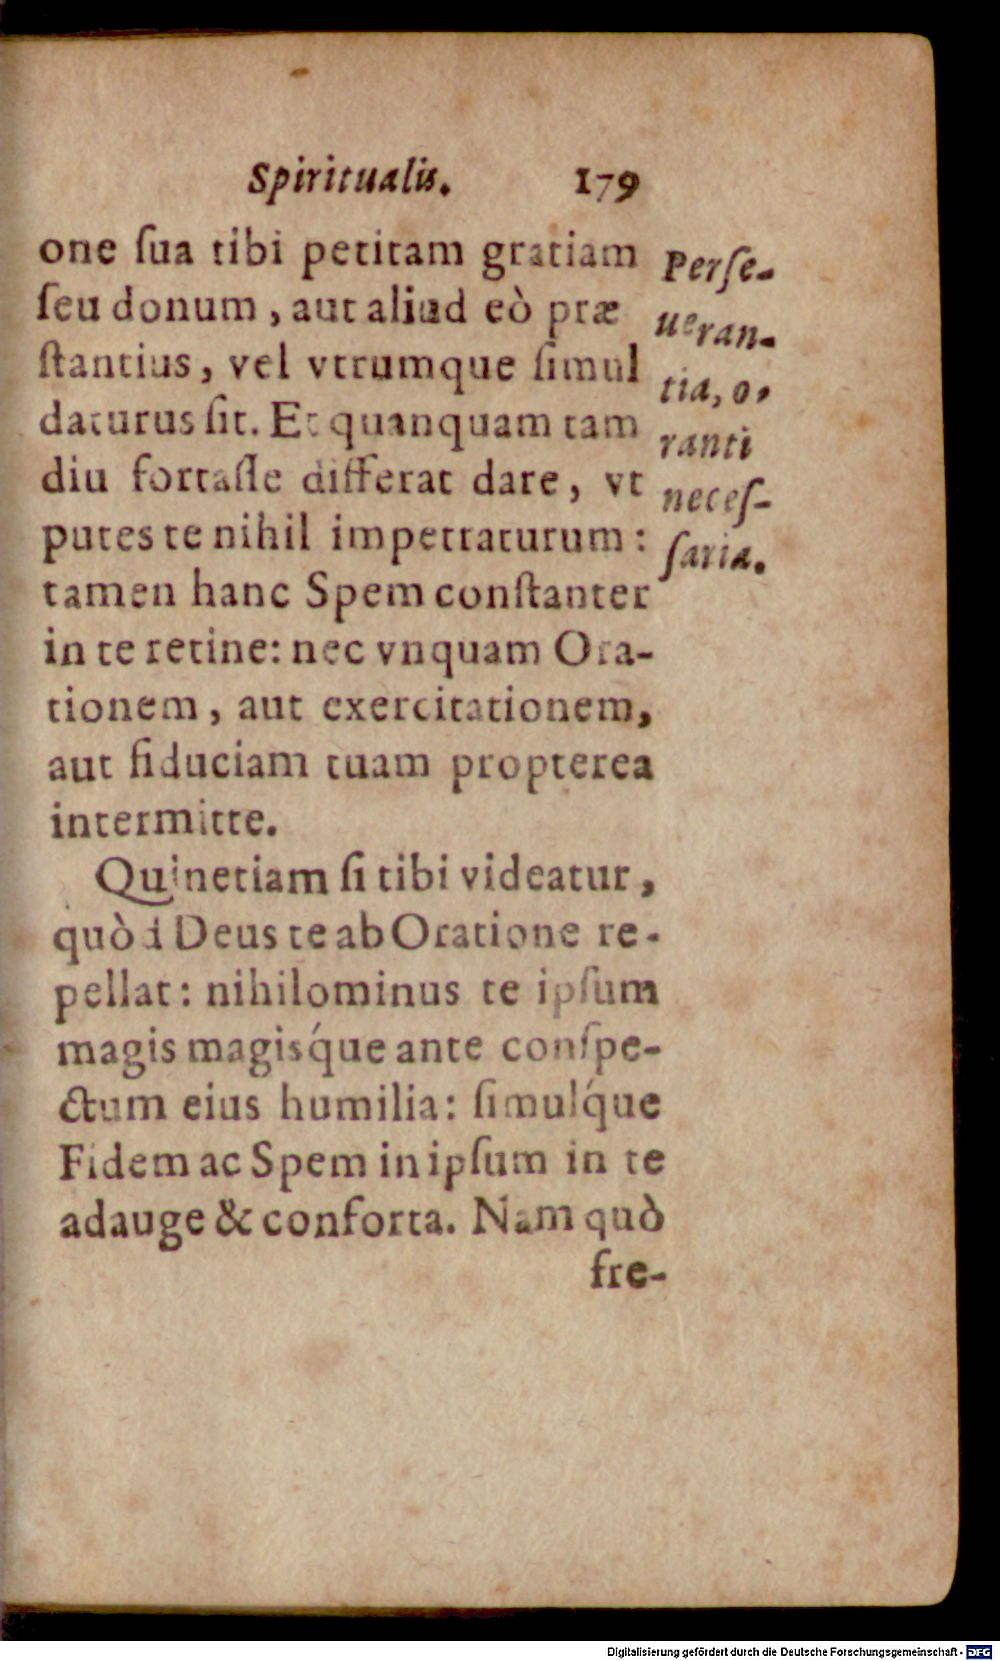 Spiritualis. 179
one ſua tibi petitam gratiam
ſeu donum, aut aliud eò præ
ſtantius, vel vtrumque ſimul
daturus ſit. Et quanquam tam
diu fortaſſe differat dare, vt
putes te nihil impetraturum:
tamen hanc Spem conſtanter
in te retine: nec vnquam Ora-
tionem, aut exercitationem,
aut fiduciam tuam propterea
intermitte.
Quinetiam ſi tibi videatur,
quòd Deus te ab Oratione re-
pellat: nihilominus te ipſum
magis magisq́ue ante conſpe-
ctum eius humilia: ſimulq́ue
Fidem ac Spem in ipſum in te
adauge & conforta. Nam quò
fre-
Perſe-
ueran-
tia, o-
ranti
neceſ-
ſaria.
Digitalisierung gefördert durch die Deutsche Forschungsgemeinschaft - DFG